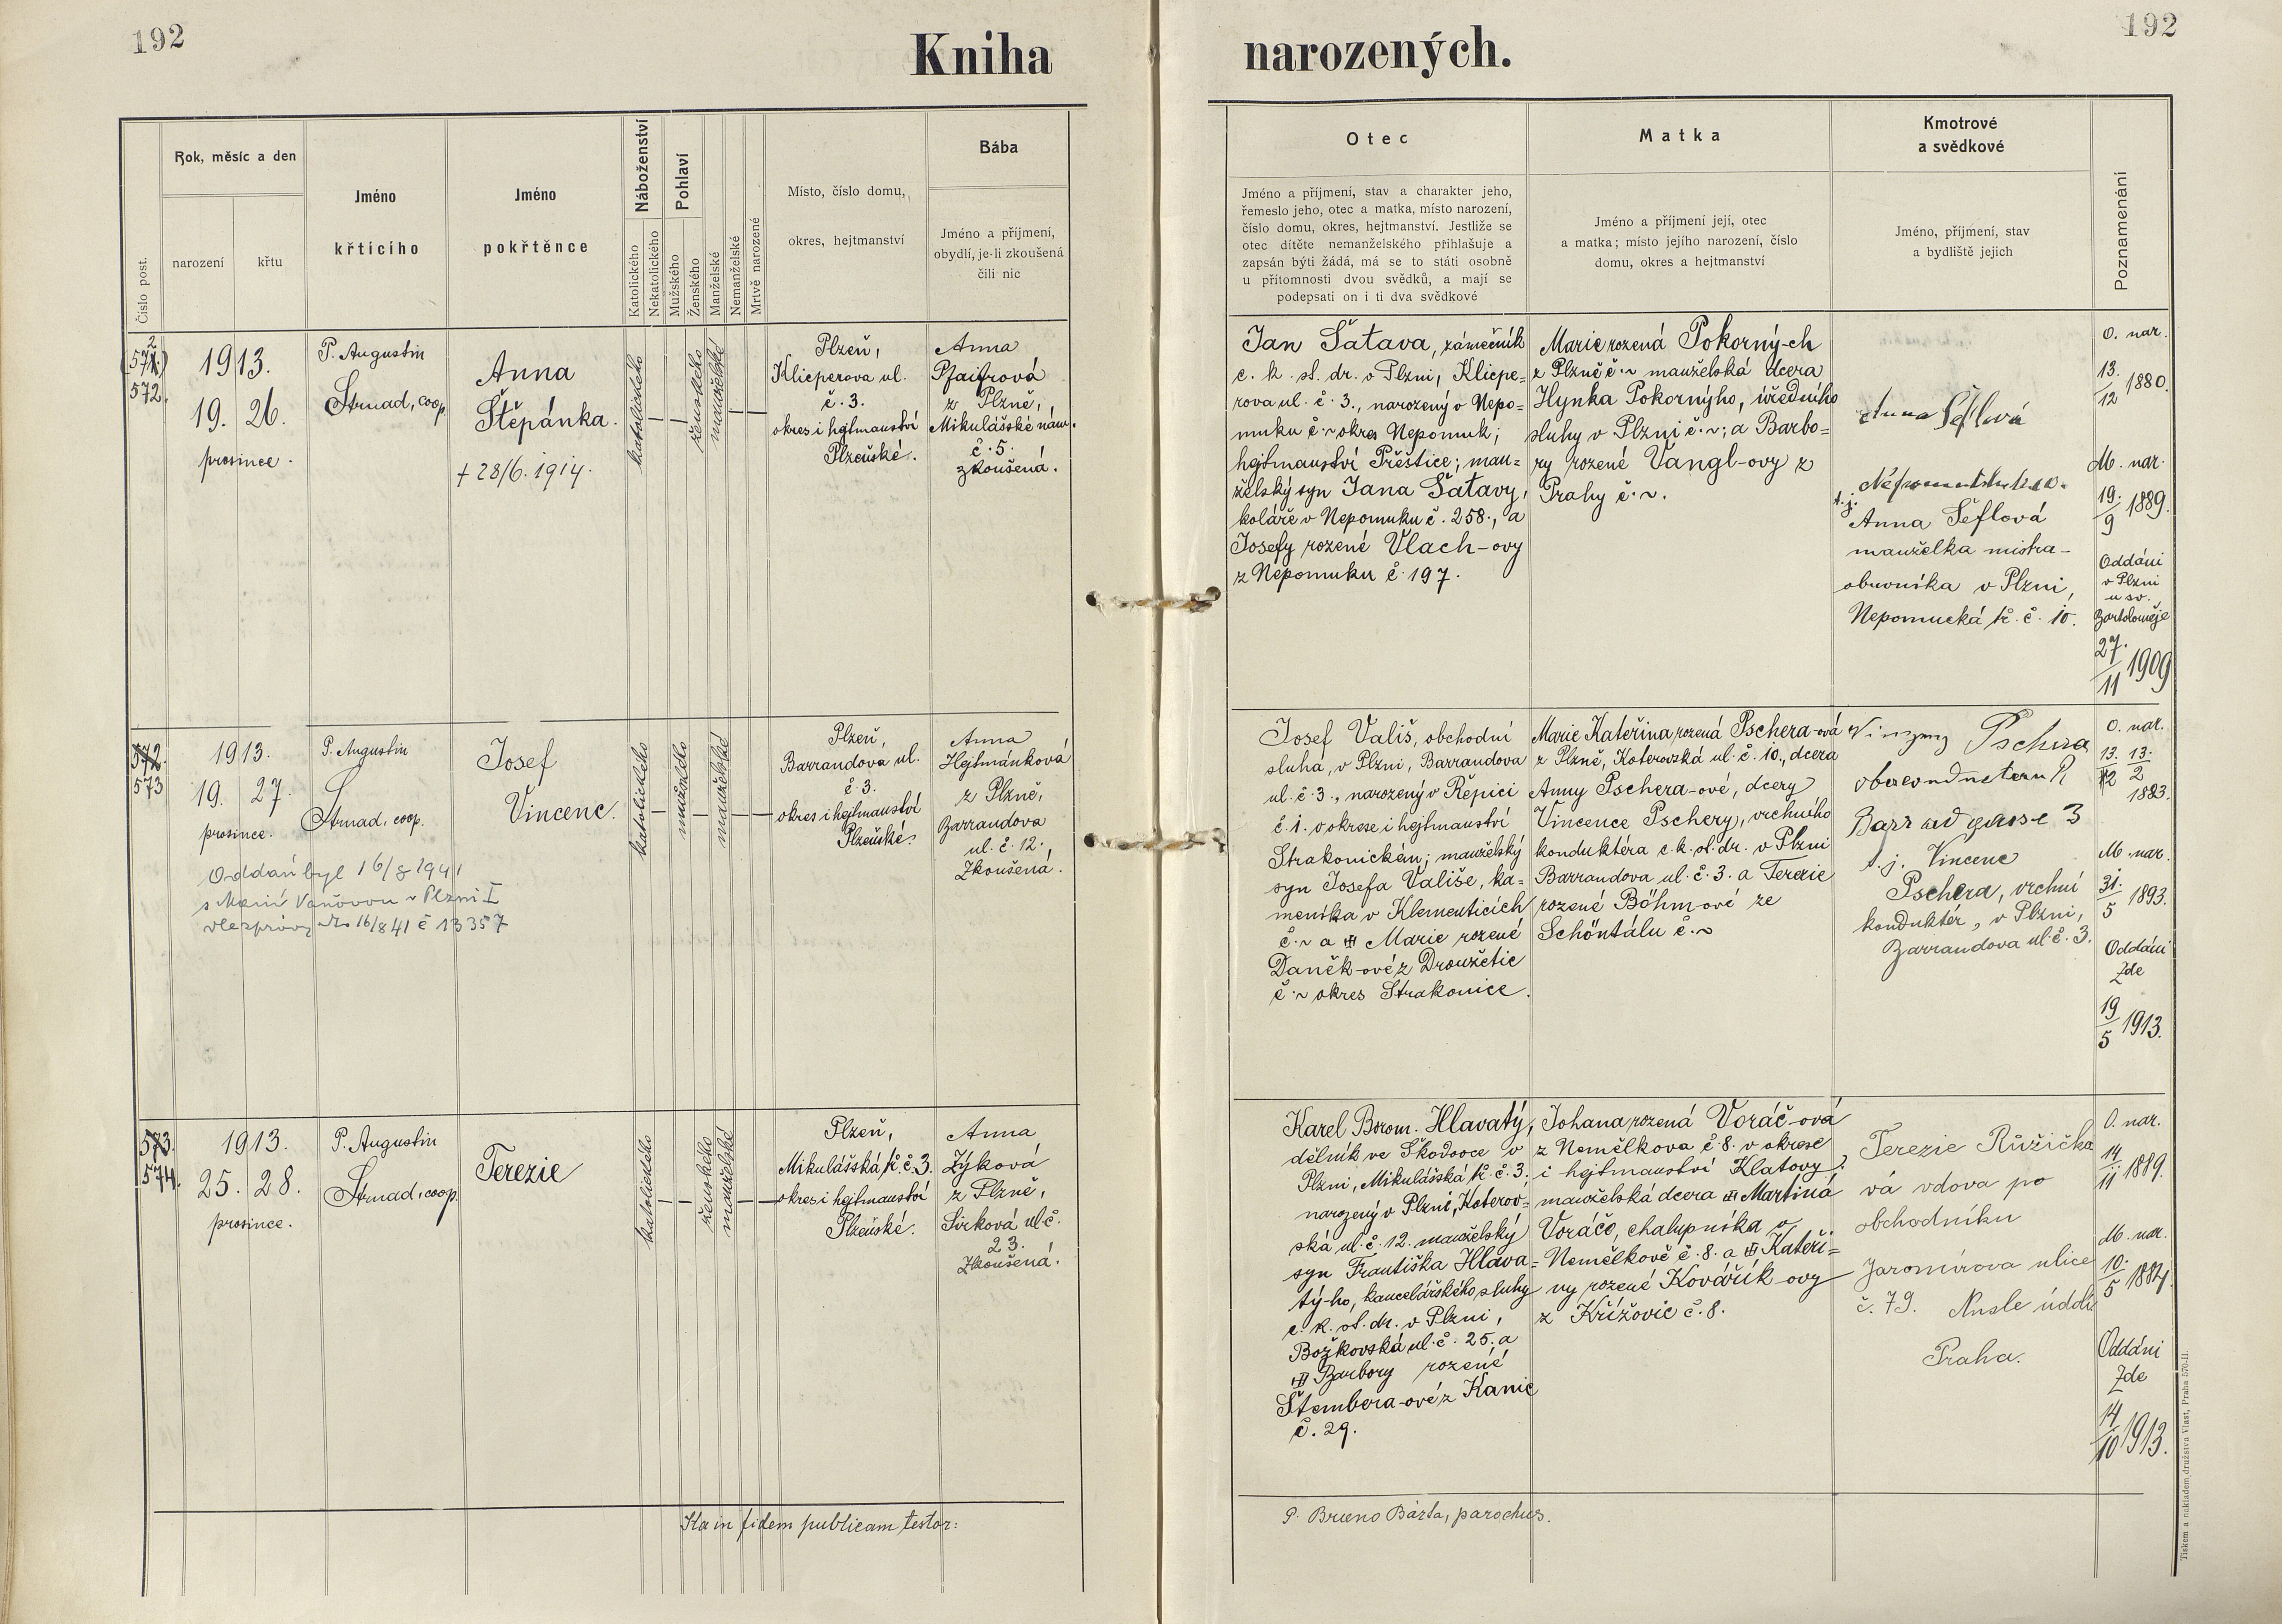 192
192
Kniha narozených.
Číslo post.
Rok, měsíc a den
narození
křtu
Jméno
křtícího
Jméno
pokřtěnce
Náboženství
Katolického
Nekatolického
Pohlaví
Mužského
Ženského
Manželské
Nemanželské
Mrtvě narozené
Místo, číslo domu,
okres, hejtmanství
Bába
Jméno a příjmení,
obydlí, je-li zkoušená
čili nic
Otec
Jméno a příjmení, stav a charakter jeho,
řemeslo jeho, otec a matka, místo narození,
číslo domu, okres, hejtmanství. Jestliže se
otec dítěte nemanželského přihlašuje a
zapsán býti žádá, má se to státi osobně
u přítomnosti dvou svědků, a mají se
podepsati on i ti dva svědkové
Matka
Jméno a příjmení její, otec
a matka; místo jejího narození, číslo
domu, okres a hejtmanství
Kmotrové
a svědkové
Jméno, příjmení, stav
a bydliště jejich
Poznamenání
572.
1913.
19. 26.
prosince.
P. Augustin
Strnad, coop.
Anna
Štěpánka.
+ 28/6. 1914.
katolického
ženského
manželské
Plzeň,
Klicperova ul.
č. 3.
okres i hejtmanství
Plzeňské.
Anna
Pfaifrová
z Plzně,
Mikulášské nám.
č. 5.
zkoušená.
Jan Šatava, zámečník
c. k. st. dr. v Plzni, Klicpe=
rova ul. č. 3., narozený v Nepo=
muku č. ~ okres Nepomuk;
hejtmanství Přeštice; man=
želský syn Jana Šatavy,
koláře v Nepomuku č. 258., a
Josefy rozené Vlach-ovy
z Nepomuku č. 197.
Marie rozená Pokorný-ch
z Plzně č. ~ manželská dcera
Hynka Pokornýho, úředního
sluhy v Plzni č. ~; a Barbo=
ry rozené Vangl-ovy z
Prahy č. ~.
Anna Šeflová
t. j.
Anna Šeflová
manželka mistra-
obuvníka v Plzni,
Nepomucká tř. č. 10.
O. nar.
13./12 1880.
M. nar.
19./9 1889.
Oddáni
v Plzni
u sv.
Bartoloměje
27./11 1909
572.
573
1913.
19. 27.
prosince.
P. Augustin
Strnad, coop.
Josef
Vincenc.
katolického
mužského
manželské
Oddán byl 16/8 1941
s Marií Vaňovou v Plzni I
dle zprávy z 16/8 41 č 13357
Plzeň,
Barrandova ul.
č. 3.
okres i hejtmanství
Plzeňské.
Anna
Hejtmánková
z Plzně,
Barrandova
ul. č. 12.,
Zkoušená.
Josef Vališ, obchodní
sluha, v Plzni, Barrandova
ul. č. 3., narozený v Řepici
č. 1. v okrese i hejtmanství
Strakonickém; manželský
syn Josefa Vališe, ka=
meníka v Klementicích
č. ~ a Marie rozené
Daněk-ové z Droužetic
č. ~ okres Strakonice.
Marie Kateřina, rozená Pschera-ová
z Plzně, Koterovská ul. č. 10., dcera
Anny Pschera-ové, dcery
Vincence Pschery, vrchního
konduktéra c. k. st. dr. v Plzni
Barrandova ul. č. 3. a Terezie
rozené Böhm-ové ze
Schöntálu č. ~
Vinzenz Pschera
3
t. j. Vincenc
Pschera, vrchní
konduktér, v Plzni,
Barrandova ul. č. 3.
O. nar.
13./2 1883.
M. nar.
31./5 1893.
Oddáni
Zde
19/5 1913.
573.
574.
1913.
25. 28.
prosince.
P. Augustin
Strnad, coop.
Terezie
katolického
ženského
manželské
Plzeň,
Mikulášská tř. č. 3.
okres i hejtmanství
Plzeňské.
Anna
Zýková
z Plzně,
Sirková ul. č.
23.
Zkoušená.
Karel Borom. Hlavatý,
dělník ve Škodovce v
Plzni, Mikulášská tř. č. 3;
narozený v Plzni, Koterov=
ská ul. č. 12. manželský
syn Františka Hlava=
tý-ho, kancelářského sluhy
c. k. st. dr. v Plzni,
Božkovská ul. č. 25. a
Barbory rozené
Štembera-ové z Kanic
č. 29.
Johana, rozená Voráč-ová
z Nemělkova č. 8. v okrese
i hejtmanství Klatovy;
manželská dcera Martina
Voráče, chalupníka v
Nemělkově č. 8. a Kateři=
ny rozené Kovářík-ovy
z Křížovic č. 8.
Terezie Růžička
vá vdova po
obchodníku
Jaromírova ulice
č. 79. Nusle údolí
Praha.
O. nar.
14/11 1889.
M. nar.
10./5 1884.
Oddáni
Zde
14/10 1913.
Ita in fidem publicam testor:
P. Bruno Bárta, parochus.
Tiskem a nákladem družstva Vlast, Praha 570-II.